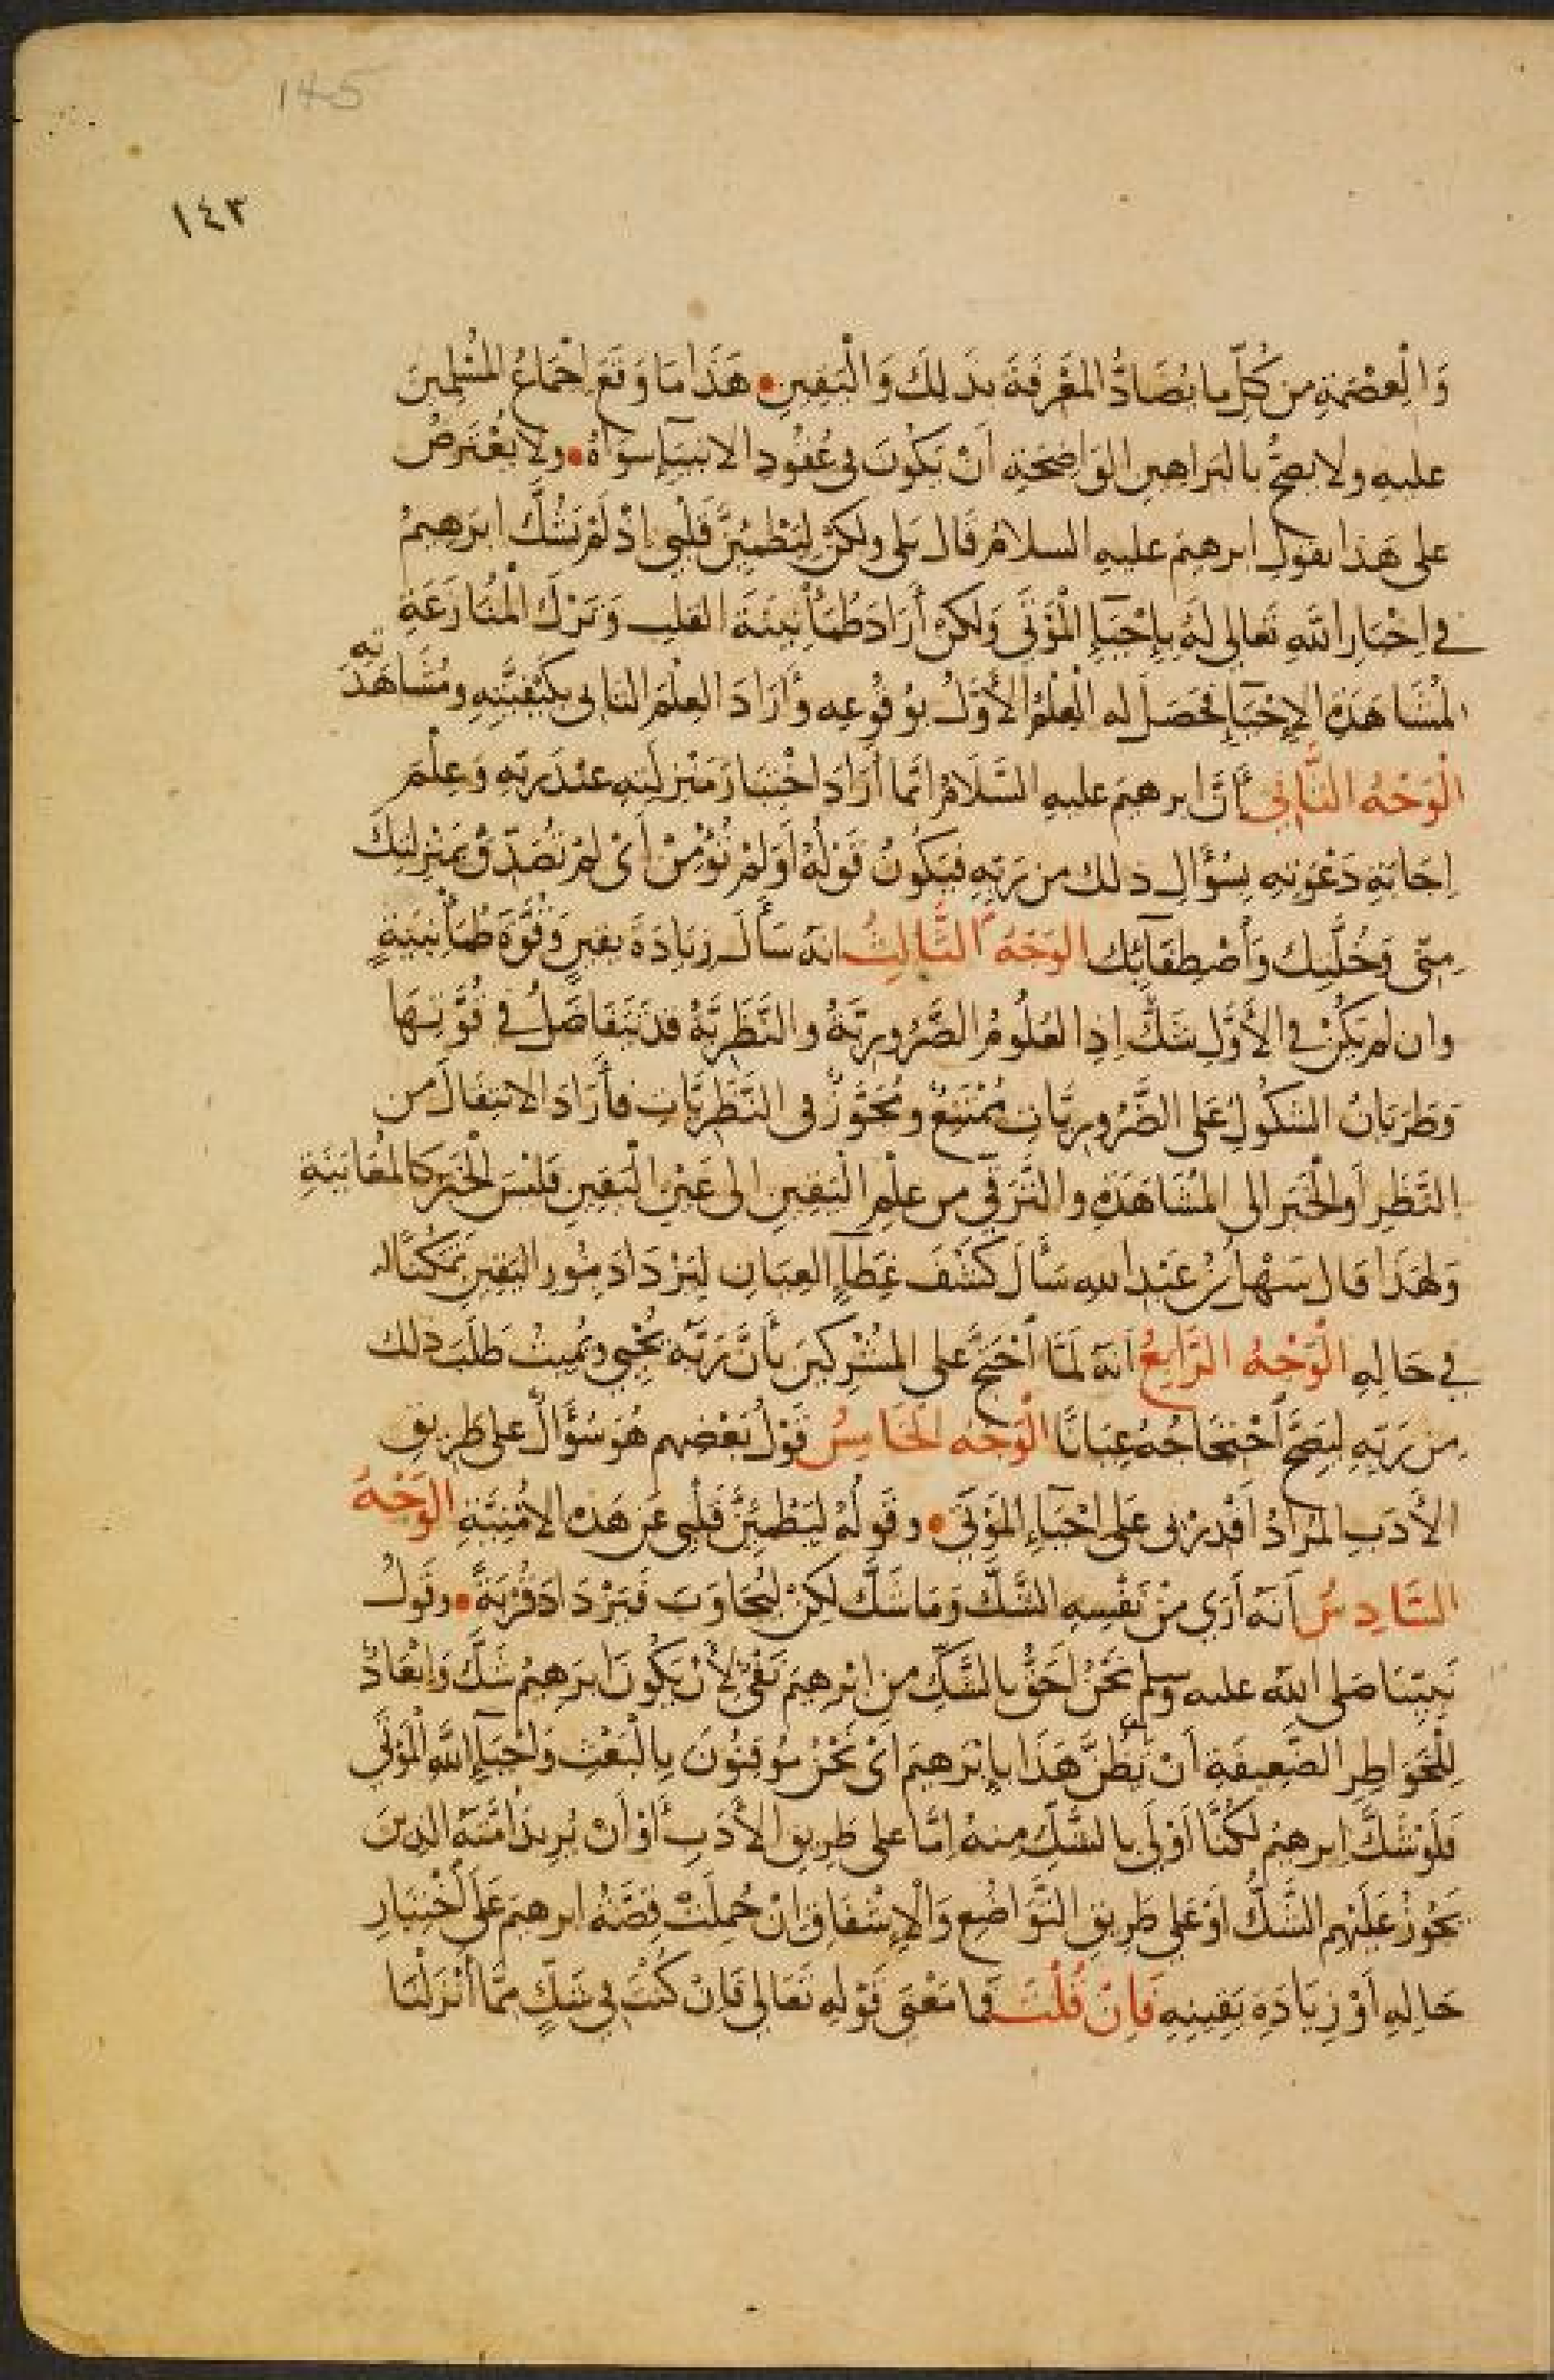 145
١٤٣
وَالْعِصْمَةِ من كُلِّ ما يُضَادُّ المَعْرِفَةَ بذَلِكَ وَالْيَقِينِ • هَذَا مَا وَقَعَ إجْمَاعُ المُسْلِمِينَ
عليهِ ولا يصحُّ بالبَرَاهِينِ الوَاضِحَةِ أنْ يَكُونَ في عُقُودِ الانبيَآءِ سِوَاهُ • ولا يُعْتَرَضُ
على هَذَا بقَولِ ابرهيمَ عليهِ السلامُ قَالَ بَلى ولكنْ لِيَطْمَئِنَّ قَلْبِي إذْ لَمْ يَشُكَّ ابرَهِيمُ
في إخْبَارِ اللهِ تَعالى لَهُ بِإحْيَآءِ الْمَوْتَى وَلكنْ أَرَادَ طُمَأْنِينَةَ القلبِ وَتَرْكَ الْمُنَازَعَةِ
لمُشَاهَدَةِ الإحْيَآءِ فحَصَلَ له الْعِلْمُ الأَوَّلُ بوُقُوعِه وَأَرَادَ العِلْمَ الثاني بكَيْفِيَّتِهِ ومُشَاهَدَتِهِ
الْوَجْهُ الثَّانِي أَنَّ ابرهيمَ عليهِ السَّلَامُ انَّما أَرَادَ اخْتِبَارَ مَنْزِلَتِهِ عِنْدَ رَبِّهِ وَعِلْمَ
إجَابَتِهِ دَعْوَتِهِ بِسُؤَالِ ذلك من رَبِّهِ فيَكُونُ قَوْلُهُ أَوَلَمْ تُؤْمِنْ أَيْ لمْ تُصَدِّقْ بمَنْزِلتِكَ
مِنّي وَخُلَّتِك وَأصْطِفَآئِك الوَجْهُ الثَّالِثُ انه سَأَلَ زِيَادَةَ يقينٍ وَقُوَّةَ طُمَأْنِينَةٍ
وان لم يَكُنْ في الأَوَّلِ شَكٌّ إذِ العُلُومُ الضَّرُورِيَّةُ والنَّظَرِيَّةُ قد تَتَفَاضَلُ في قُوَّتِهَا
وَطَرَيَانُ الشكُوكِ عَلى الضَّرُورِيَّاتِ مُمْتَنِعٌ ومُجَوَّزٌ في النَّظَرِيَّاتِ فأَرَادَ الانتِقَالَ من
النَّظَرِ أوِ الْخَبَرِ الى المُشَاهَدَةِ والتَّرَقِّي من عِلْمِ الْيَقِينِ الى عَيْنِ الْيَقِينِ فَلَيْسَ الْخَبَرُ كَالْمُعَايَنَةِ
وَلهَذَا قَالَ سَهْلُ بْنُ عَبْدِ اللهِ سَأَلَ كَشْفَ غِطَآءِ العِيَانِ لِيَزْدَادَ بنُورِ اليَقِينِ تَمَكُّنًا
في حَالِهِ الْوَجْهُ الرَّابِعُ أَنَّهُ لَمَّا احْتَجَّ على المُشْرِكينَ بأَنَّ رَبَّهُ يُحْيِي ويُمِيتُ طَلَبَ ذلك
مِن رَبِّهِ لِيَصِحَّ احْتِجَاجُهُ عِيَانًا الْوَجْهُ الخَامِسُ قَوْلُ بَعْضِهم هُوَ سُؤَالٌ على طريقِ
الأَدَبِ المُرَادُ أَقْدِرْنِي عَلى احْيَآءِ المَوْتَى • وقَولُهُ لِيَطْمَئِنَّ قَلْبي عَن هَذِهِ الامْنِيَّةِ الوَجْهُ
السَّادِسُ أَنَّهُ أَرَى مِنْ نَفْسِهِ الشَّكَّ وَمَا شَكَّ لكِنْ لِيُجَاوَبَ فَيَزْدَادَ قُرْبَةً • وقَولُ
نَبِيِّنَا صَلى الله عليه وسلم نَحْنُ أَحَقُّ بالشَّكِّ من ابْرهِيمَ نَفْيٌ لأَنْ يَكُونَ ابرَهِيمُ شَكَّ وَإبْعَادٌ
لِلْخَوَاطِرِ الضَّعِيفَةِ أنْ تَظُنَّ هَذَا بِإبْرَهِيمَ أَيْ نَحْنُ مُوقِنُونَ بِالْبَعْثِ وَإحْيَآءِ اللهِ الْمَوْتَى
فَلَوْ شَكَّ ابرهيمُ لَكُنَّا أَوْلَى بالشَّكِّ مِنهُ إمَّا على طَرِيقِ الأَدَبِ أَوْ أَنْ يُرِيدَ أُمَّتَهُ الذِينَ
يَجُوزُ عَلَيْهِم الشَّكُّ أوْ عَلى طَرِيقِ التَّوَاضُعِ وَالْإشْفَاقِ انْ حُمِلَتْ قِصَّةُ ابرهيمَ عَلَى اخْتِبَارِ
حَالِهِ أَوْ زِيَادَةِ يَقِينِهِ فَإِنْ قُلْتَ فَمَا مَعْنَى قَوْلِهِ تَعَالى فَإن كُنْتَ في شَكٍّ مِمَّا أَنْزَلْنَا